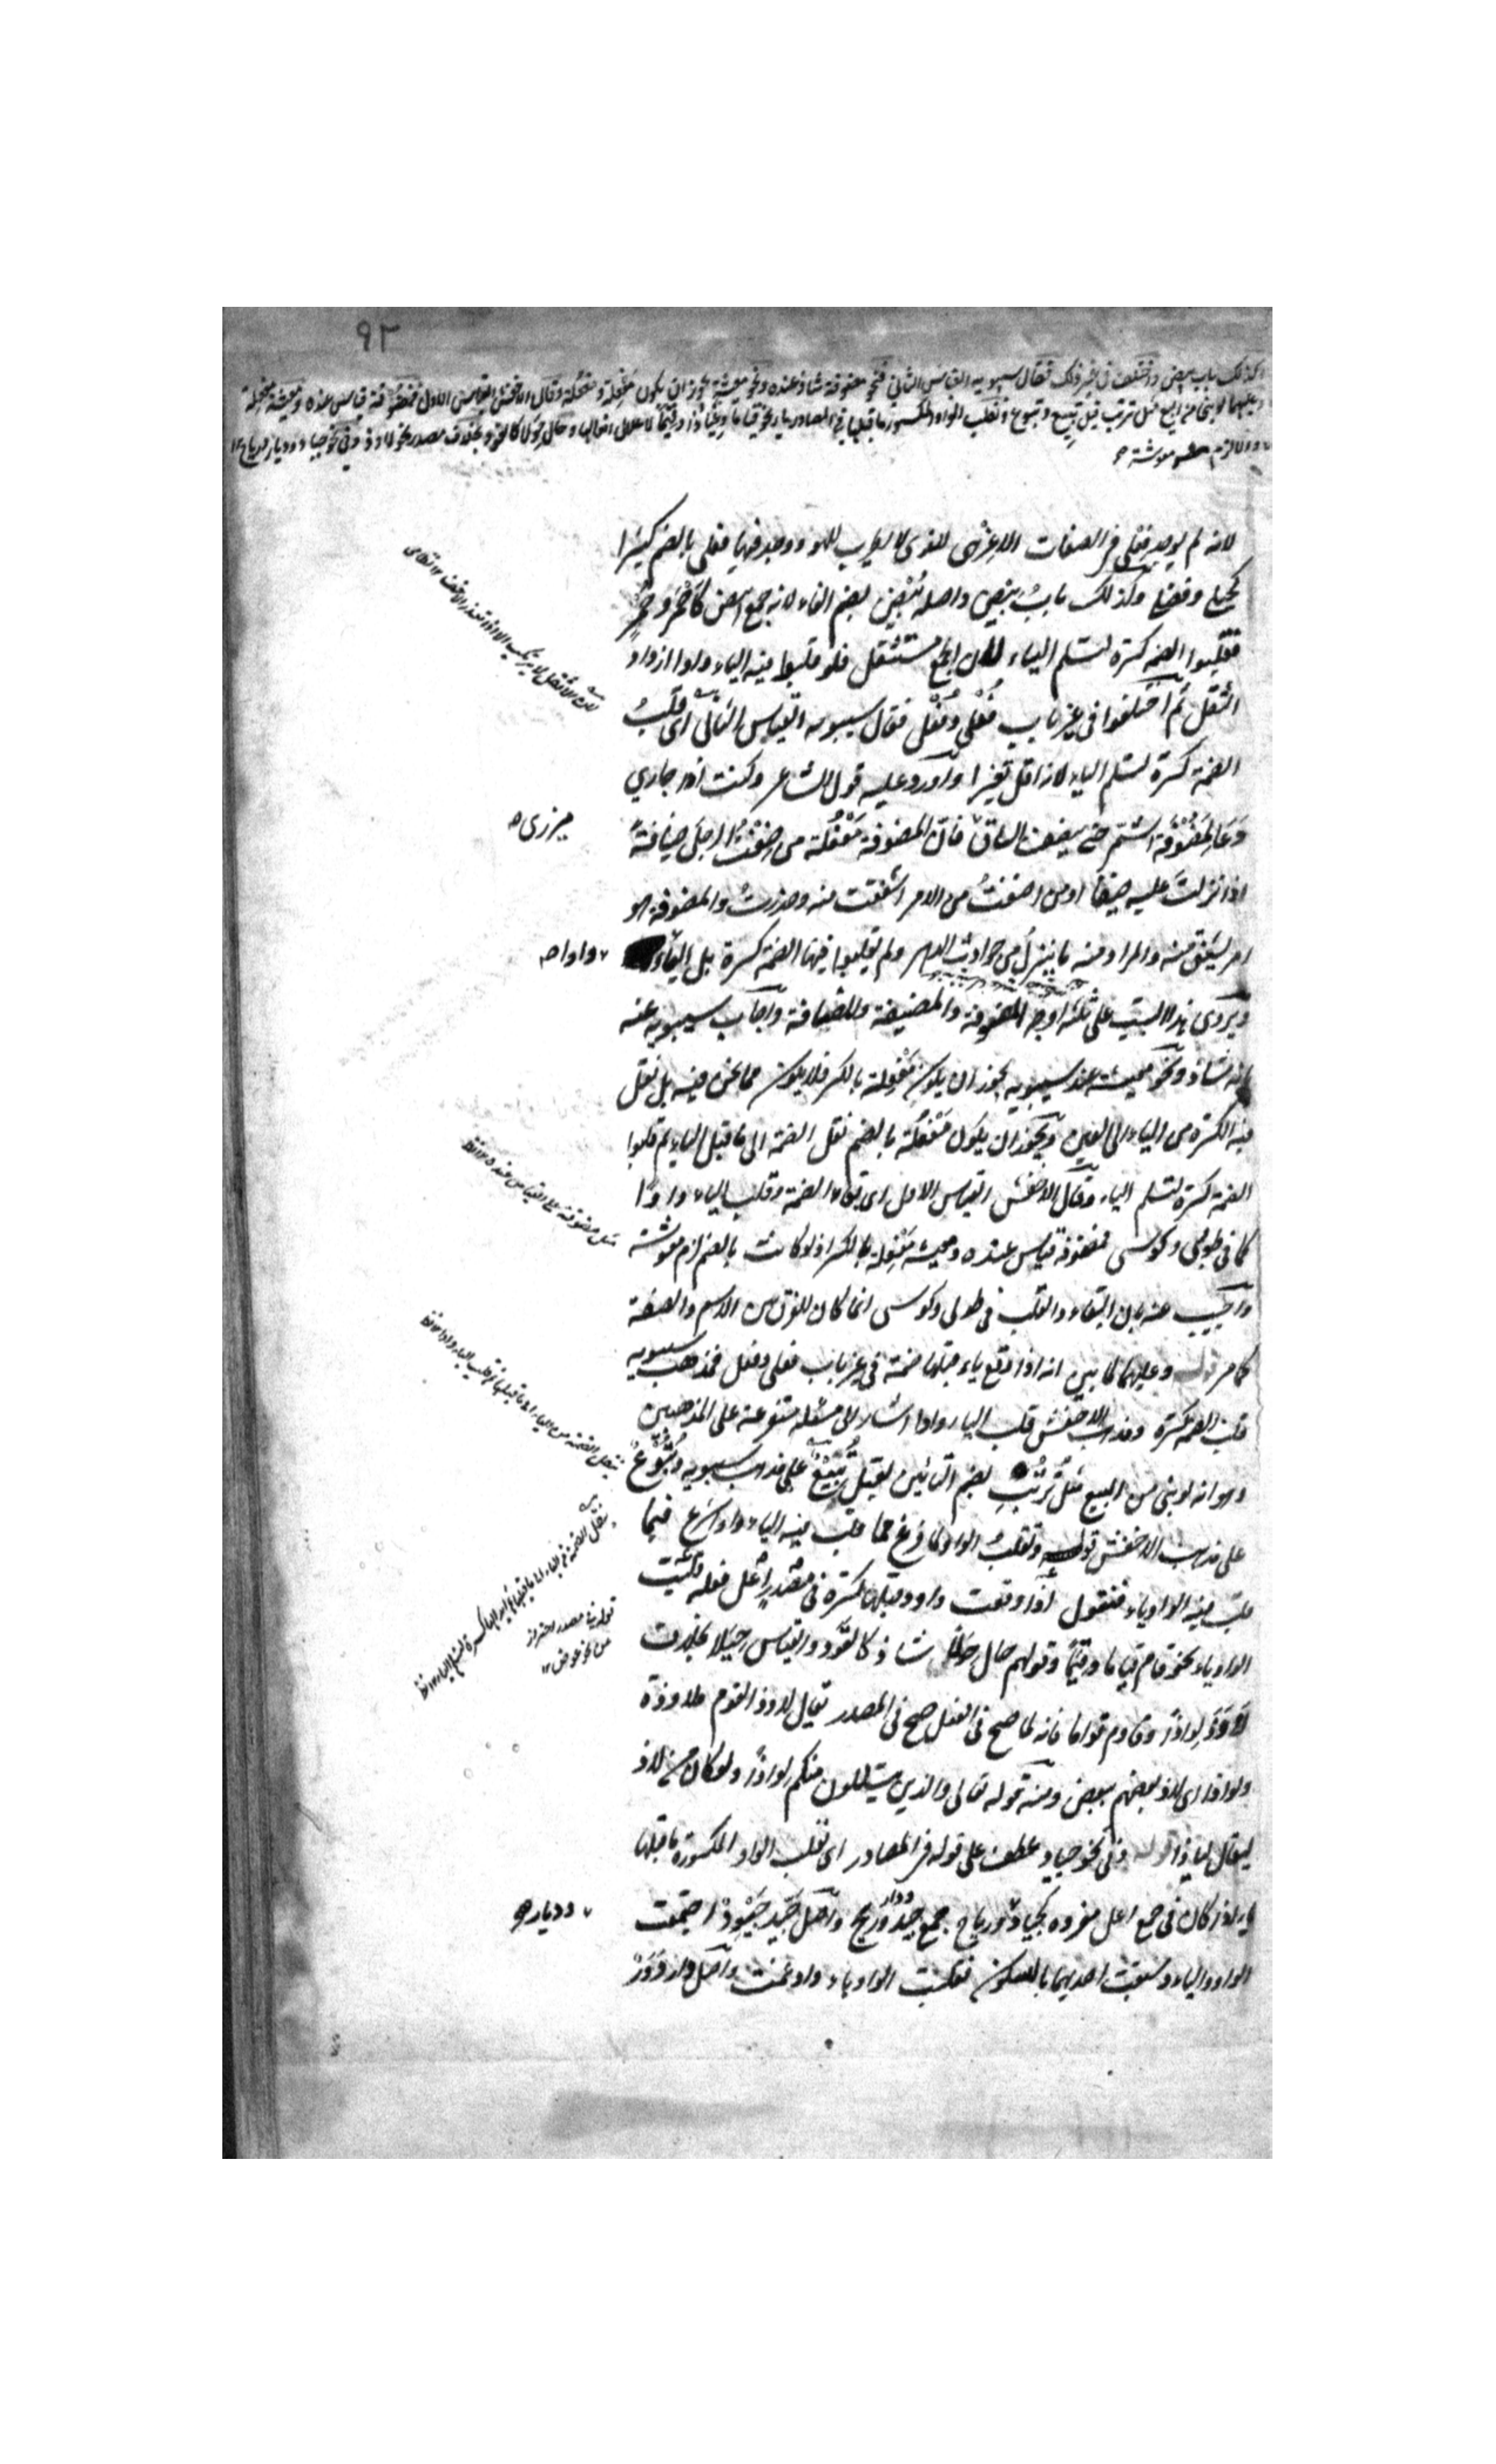 ٩٢
وكذلك باب بيض واختلف في غير ذلك فقال سيبويه القياس الثاني فنحو مضوفة شاذ عنده ونحو معيشة يجوز ان يكون مفعلة ومفعلة وقال الاخفش القياس الاول فمضوفة قياس عنده ومعيشة مفعلة
وعليهما لو بنى من البيع مثل ترتب لقيل تبيع وتبوع وتقلب الواو المكسور ما قبلها في المصادر ياء نحو قياما وعياذا وقيما لاعلال افعالها وحال حولا كالقود بخلاف مصدر نحو لاوذ وفي نحو جياد وديار ورياح
والا لزم معوشة
لانه لم يوجد فعلى في الصفات الا عزهى للذي لا يطرب للهو ووجد فيها فعلى بالضم كثيرا
كحبلى وفضلى وكذلك باب بيض واصله بيض بضم الفاء لانه جمع ابيض كاحمر وحمر
فقلبوا الضمة كسرة لتسلم الياء لان الجمع مستثقل فلو قلبوا فيه الياء واوا ازداد
الثقل ثم اختلفوا في غير باب فعلى وفعل فقال سيبويه القياس الثاني اى قلب
الضمة كسرة لتسلم الياء لانه اقل تغيرا واورد عليه قول الشاعر وكنت اذا جاري
دعا لمضوفة اشمر حتى ينصف الساق فان المضوفة مفعلة من ضفت الرجل ضيافة
ميزرى
اذا نزلت عليه ضيفا او من اضفت من الامر اشفقت منه وحذرت والمضوفة هو
امر يشفق منه والمراد منه ما ينزل من حوادث الدهر ولم يقلبوا فيها الضمة كسرة بل الياء
واوا
ويروى هذا البيت على ثلثة اوجه المضوفة والمضيفة والمضافة واجاب سيبويه عنه
بانه شاذ ونحو معيشة عند سيبويه يجوز ان يكون مفعلة بالكسر فلا يكون مما نحن فيه بل نقل
فيه الكسرة من الياء الى العين ويجوز ان يكون مفعلة بالضم نقل الضمة الى ما قبل الياء ثم قلبوا
الضمة كسرة لتسلم الياء وقال الاخفش القياس الاول اى بقاء الضمة وقلب الياء واوا
كما في طوبى وكوسى فمضوفة قياس عنده ومعيشة مفعلة بالكسر اذ لو كانت بالضم لزم معوشة
واجيب عنه بان البقاء والقلب في طوبى وكوسى انما كان للفرق بين الاسم والصفة
كما مر قوله وعليهما لما بين انه اذا وقع ياء قبلها ضمة في غير باب فعلى وفعل فمذهب سيبويه
قلب الضمة كسرة ومذهب الاخفش قلب الياء واوا اشار الى مسئلة متفرعة على المذهبين
وهو انه لو بنى من البيع مثل ترتب بضم التائين لقيل تبيع على مذهب سيبويه وتبوع
على مذهب الاخفش قوله وتقلب الواو لما فرغ مما قلب فيه الياء واوا شرع فيما
قلب فيه الواو ياء فنقول اذا وقعت واو وقبلها كسرة في مصدر اعل فعله قلبت
الواو ياء نحو قام قياما وقيما وقولهم حال حولا شاذ كالقود والقياس حيلا بخلاف
لاوذ لواذا وقاوم قواما فانه لما صح في الفعل صح في المصدر يقال لاوذ القوم ملاوذة
ولواذا اى لاذ بعضهم ببعض ومنه قوله تعالى الذين يتسللون منكم لواذا ولو كان من لاذ
ليقال لياذا قوله وفي نحو جياد عطف على قوله في المصادر اى تقلب الواو المكسورة ما قبلها
ياء اذا كان في جمع اعل مفرده كجياد ورياح جمع جيد ودار وريح واصل جيد جيود اجتمعت
وديار
الواو والياء وسبقت احديهما بالسكون فقلبت الواو ياء وادغمت واصل دار دور
قوله في مصدر احتراز
من نحو عوض